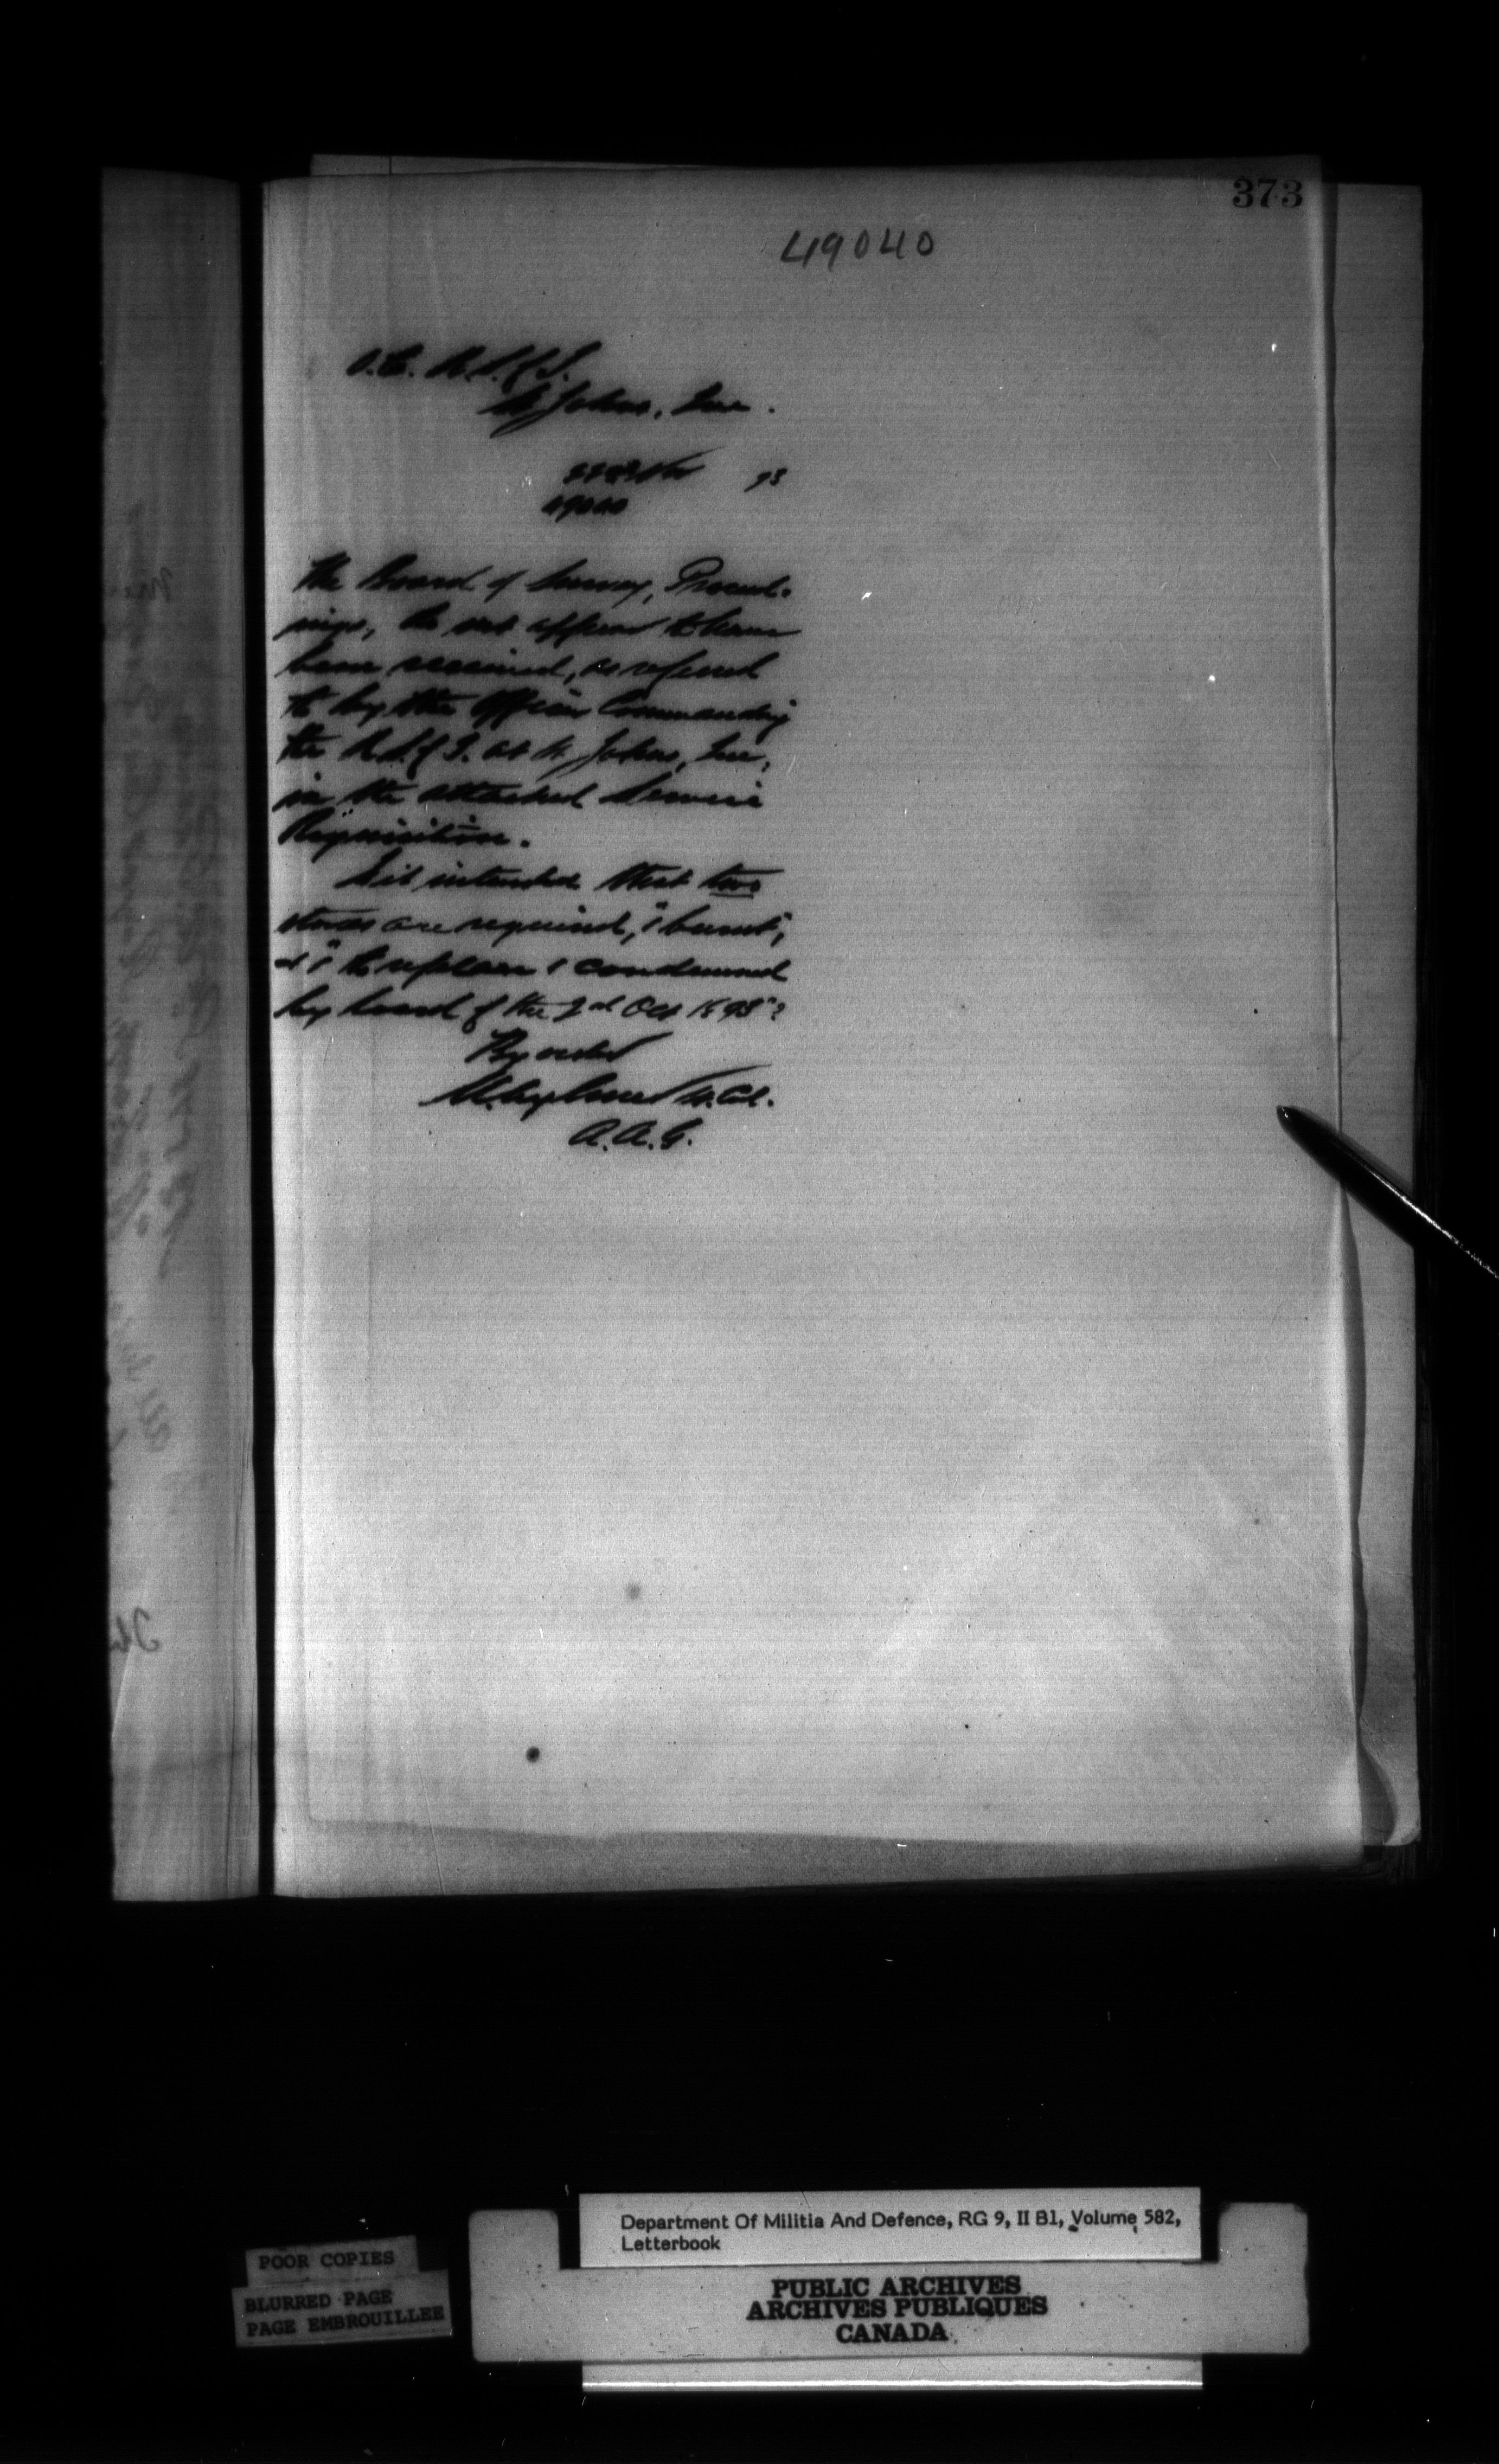 373
49040
O.C. R.S. of I.
St Johns, Que.
22nd Nov 93
49040
The Board of Survey, Proceed-
ings, do not appear to have
been received, as referred
to by the Officer Commanding
the R.S. of I. at St Johns, Que,
in the attached Service
Requisition.
Is it intended that two
stoves are required, "1 burnt",
& "1 to replace 1 condemned
by board of the 2nd Oct 1893"?
By order
Lt. Col.
A.A.G.
POOR COPIES
BLURRED PAGE
PAGE EMBROUILLEE
Department Of Militia And Defence, RG 9, II B1, Volume 582,
Letterbook
PUBLIC ARCHIVES
ARCHIVES PUBLIQUES
CANADA